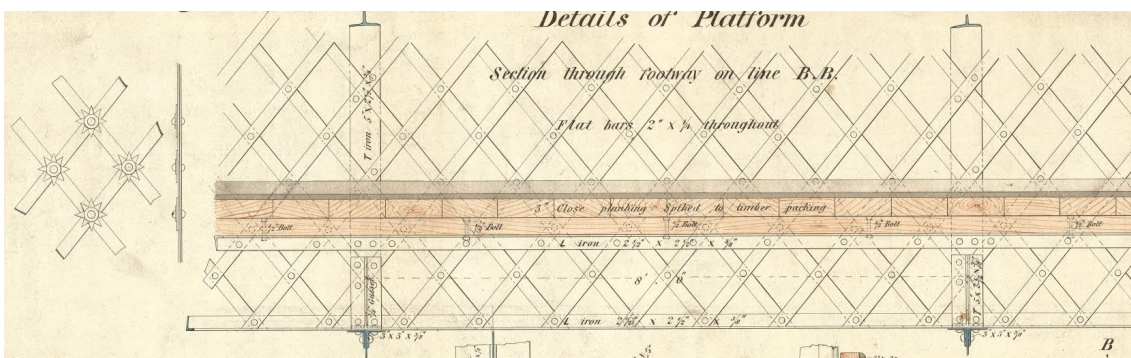 Details of Platform
Section through footway on line B.B.
Flat bars 2" x ¼ throughout
T iron 5" x 2½" x ⅜"
3" Close planking Spiked to timber packing
½" Bolt
½" Bolt
½" Bolt
½" Bolt
½" Bolt
L iron 2½" x 2½" x ⅜"
8'. 0"
Gusset
T 5 x 2½ x ⅜"
L iron 2½" x 2½" x ⅜"
3 x 3 x ⅜"
3 x 3 x ⅜"
B